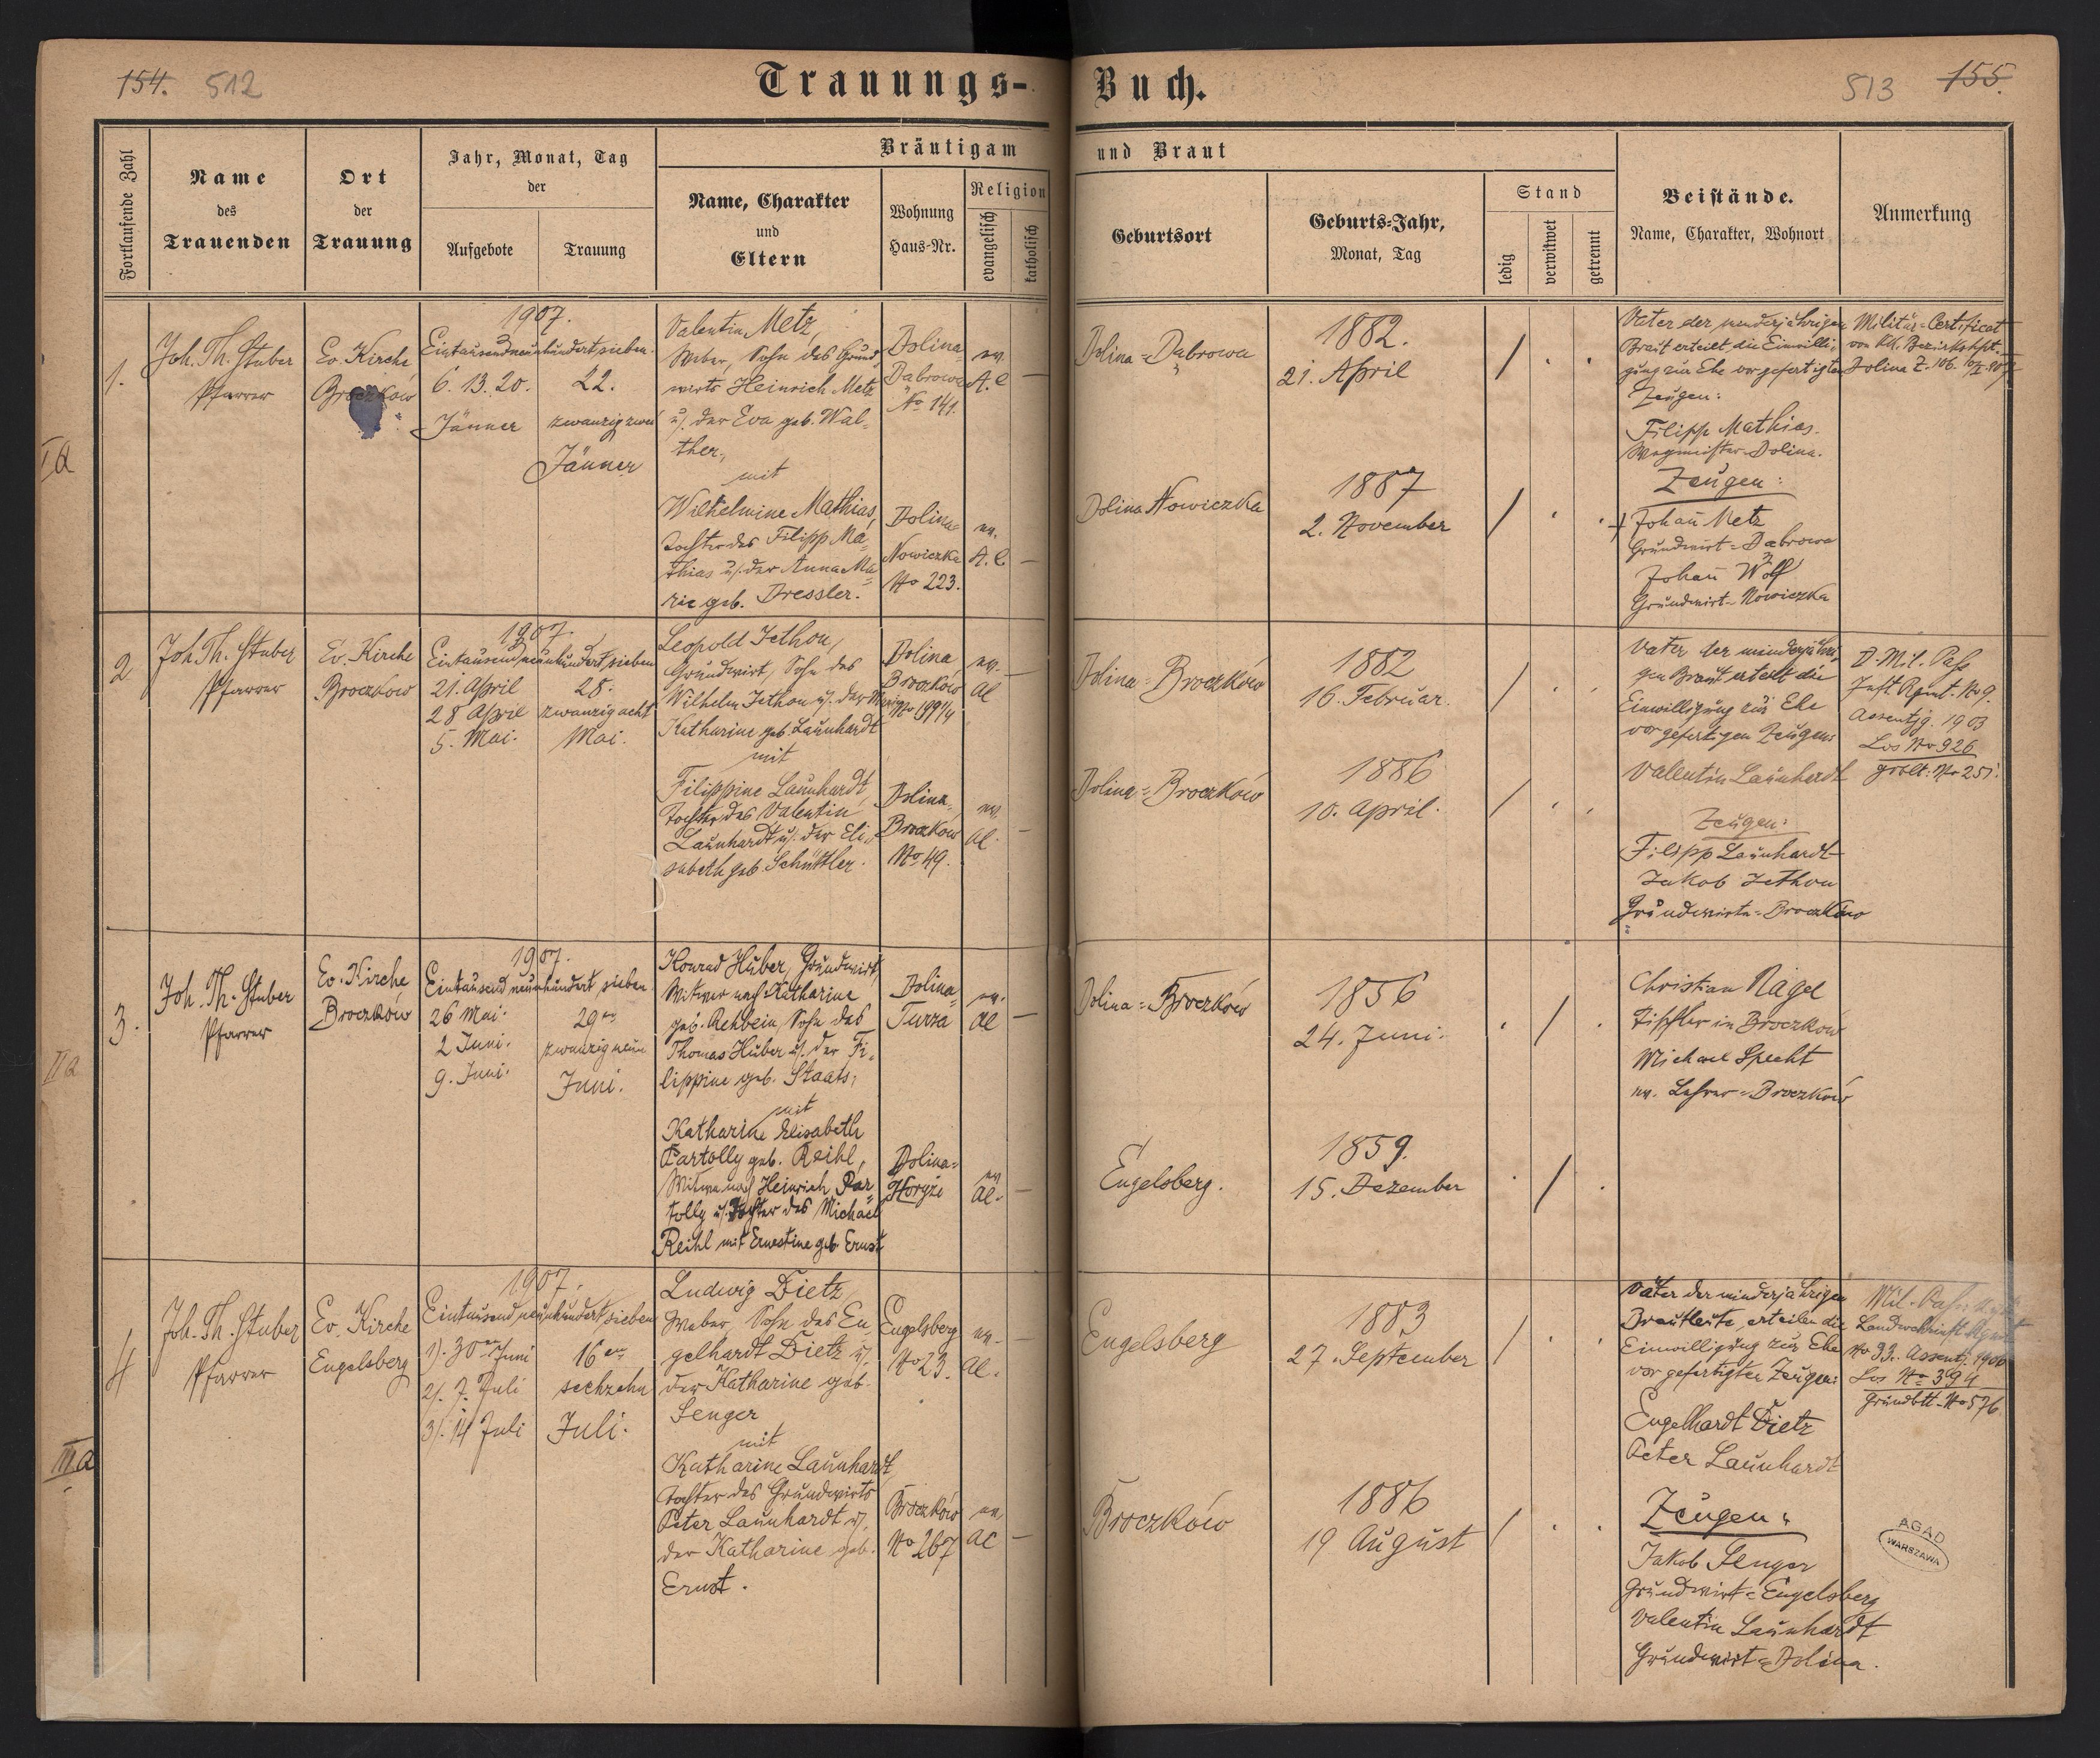 154. 512
Trauungs-Buch.
513 155.
Fortlaufende Zahl
Name
des
Trauenden
Ort
der
Trauung
Jahr, Monat, Tag
der
Aufgebote
Trauung
Bräutigam und Braut
Name, Charakter
und
Eltern
Wohnung
Haus-Nr.
Religion
evangelisch
katholisch
Geburtsort
Geburts-Jahr,
Monat, Tag
Stand
ledig
verwitwet
getrennt
Beistände.
Name, Charakter, Wohnort
Anmerkung
Ia
1.
Joh. Th. Stuber
Pfarrer
Ev. Kirche
Broczków
1907.
Eintausendneunhundertsieben.
6. 13. 20.
Jänner
22.
zwanzig zwei
Jänner
Valentin Metz,
Weber, Sohn des Grund
wirts Heinrich Metz
u/. der Eva geb. Wal=
ther,
mit
Wilhelmine Mathias,
Tochter des Filipp Ma=
thias u/. der Anna Ma=
rie geb. Dressler.
Dolina
Dabrowa
No 141.
ev.
A.C
Dolina=
Nowiczka
No 223.
ev.
A.C
Dolina=Dabrowa
1882.
21. April
/
Dolina Nowiczka
1887
2. November
/
Vater der minderjährigen
Braut erteilt die Einwilli=
gung zur Ehe vor gefertigten
Zeugen:
Filipp Mathias.
Wegmeister Dolina.
Zeugen:
Johan Metz
Grundwirt=Dabrowa
Johan Wolf
Grundwirt=Nowiczka
Militär=Certificat
von kk. Bezirkshpt.
Dolina Z. 106.
2
Joh. Th. Stuber
Pfarrer
Ev. Kirche
Broczków
1907.
Eintausendneunhundertsieben
21. April
28 April
5. Mai.
28.
zwanzig acht
Mai.
Leopold Jethon,
Grundwirt, Sohn des
Wilhelm Jethon u/. der Marie
Katharine geb. Launhardt
mit
Filippine Launhardt,
Tochter des Valentin
Launhardt u/. der Eli=
sabeth geb. Schüttler.
Dolina
Broczków
No 199 1/4
ev.
AC
Dolina,
Broczków
No 49.
ev.
AC.
Dolina=Broczków
1882
16. Februar.
/
Dolina=Broczków
1886
10. April.
/
Vater der minderjähri
gen Braut erteilt die
Einwilligung zur Ehe
vor gefertigen Zeugen:
Vallentin Launhardt
Zeugen:
Filipp Launhardt
Jakob Jethon
Grundwirte=Broczków
D. Mil. Paß
Inft. Rgmt. No 9.
Assentjg. 1903
Los No 926
grblt. No 251.
IIa
3.
Joh. Th. Stuber
Pfarrer
Ev. Kirche
Broczków
1907.
Eintausend neunhundert sieben
26 Mai.
2 Juni.
9. Juni.
29
zwanzig neun
Juni.
Konrad Huber, Grundwirt,
Witwer nach Katharine
geb. Rehbein, Sohn des
Thomas Huber u/. der Fi=
lippine geb. Staats,
mit
Katharine Elisabeth
Partolly geb. Reihl,
Witwe nach Heinrich Par=
tolly u/. Tochter des Michael
Reihl mit Ernestine geb Ernst
Dolina=
Turza
ev.
AC
Dolina=
Horyże
ev
AC.
Dolina=Broczków
1856
24. Juni.
/
Engelsberg.
1859.
15. Dezember
/
Christian Nagel
Tischler in Broczków
Michael Specht
ev. Lehrer=Broczków
IIIa
4
Joh. Th. Stuber
Pfarrer
Ev. Kirche
Engelsberg
1907.
Eintausend neunhundert sieben
1). 30 Juni
2). 7. Juli
3). 14 Juli
16
sechzehn
Juli.
Ludwig Dietz
Weber, Sohn des En
gelhardt Dietz u/.
der Katharine geb.
Senger
mit
Katharine Launhardt,
Tochter des Grundwirts
Peter Launhardt u/.
der Katharine geb.
Ernst.
Engelsberg
No 23.
ev.
AC.
Broczków
No 267
ev
AC
Engelsberg
1883
27. September
/
Broczków
1886
19 August
/
Väter der minderjährigen
Brautleute erteilen die
Einwilligung zur Ehe
vor gefertigten Zeugen:
Engelhardt Dietz
Peter Launhardt
Zeugen:
Jakob Senger
Grundwirt=Engelsberg
Valentin Launhardt
Grundwirt=Dolina.
Mil. Paß
Landwehrinft. Rgmt
No 33. Assentj. 1906
Los No 394
Grundbtt. No 576
AGAD
WARSZAWA